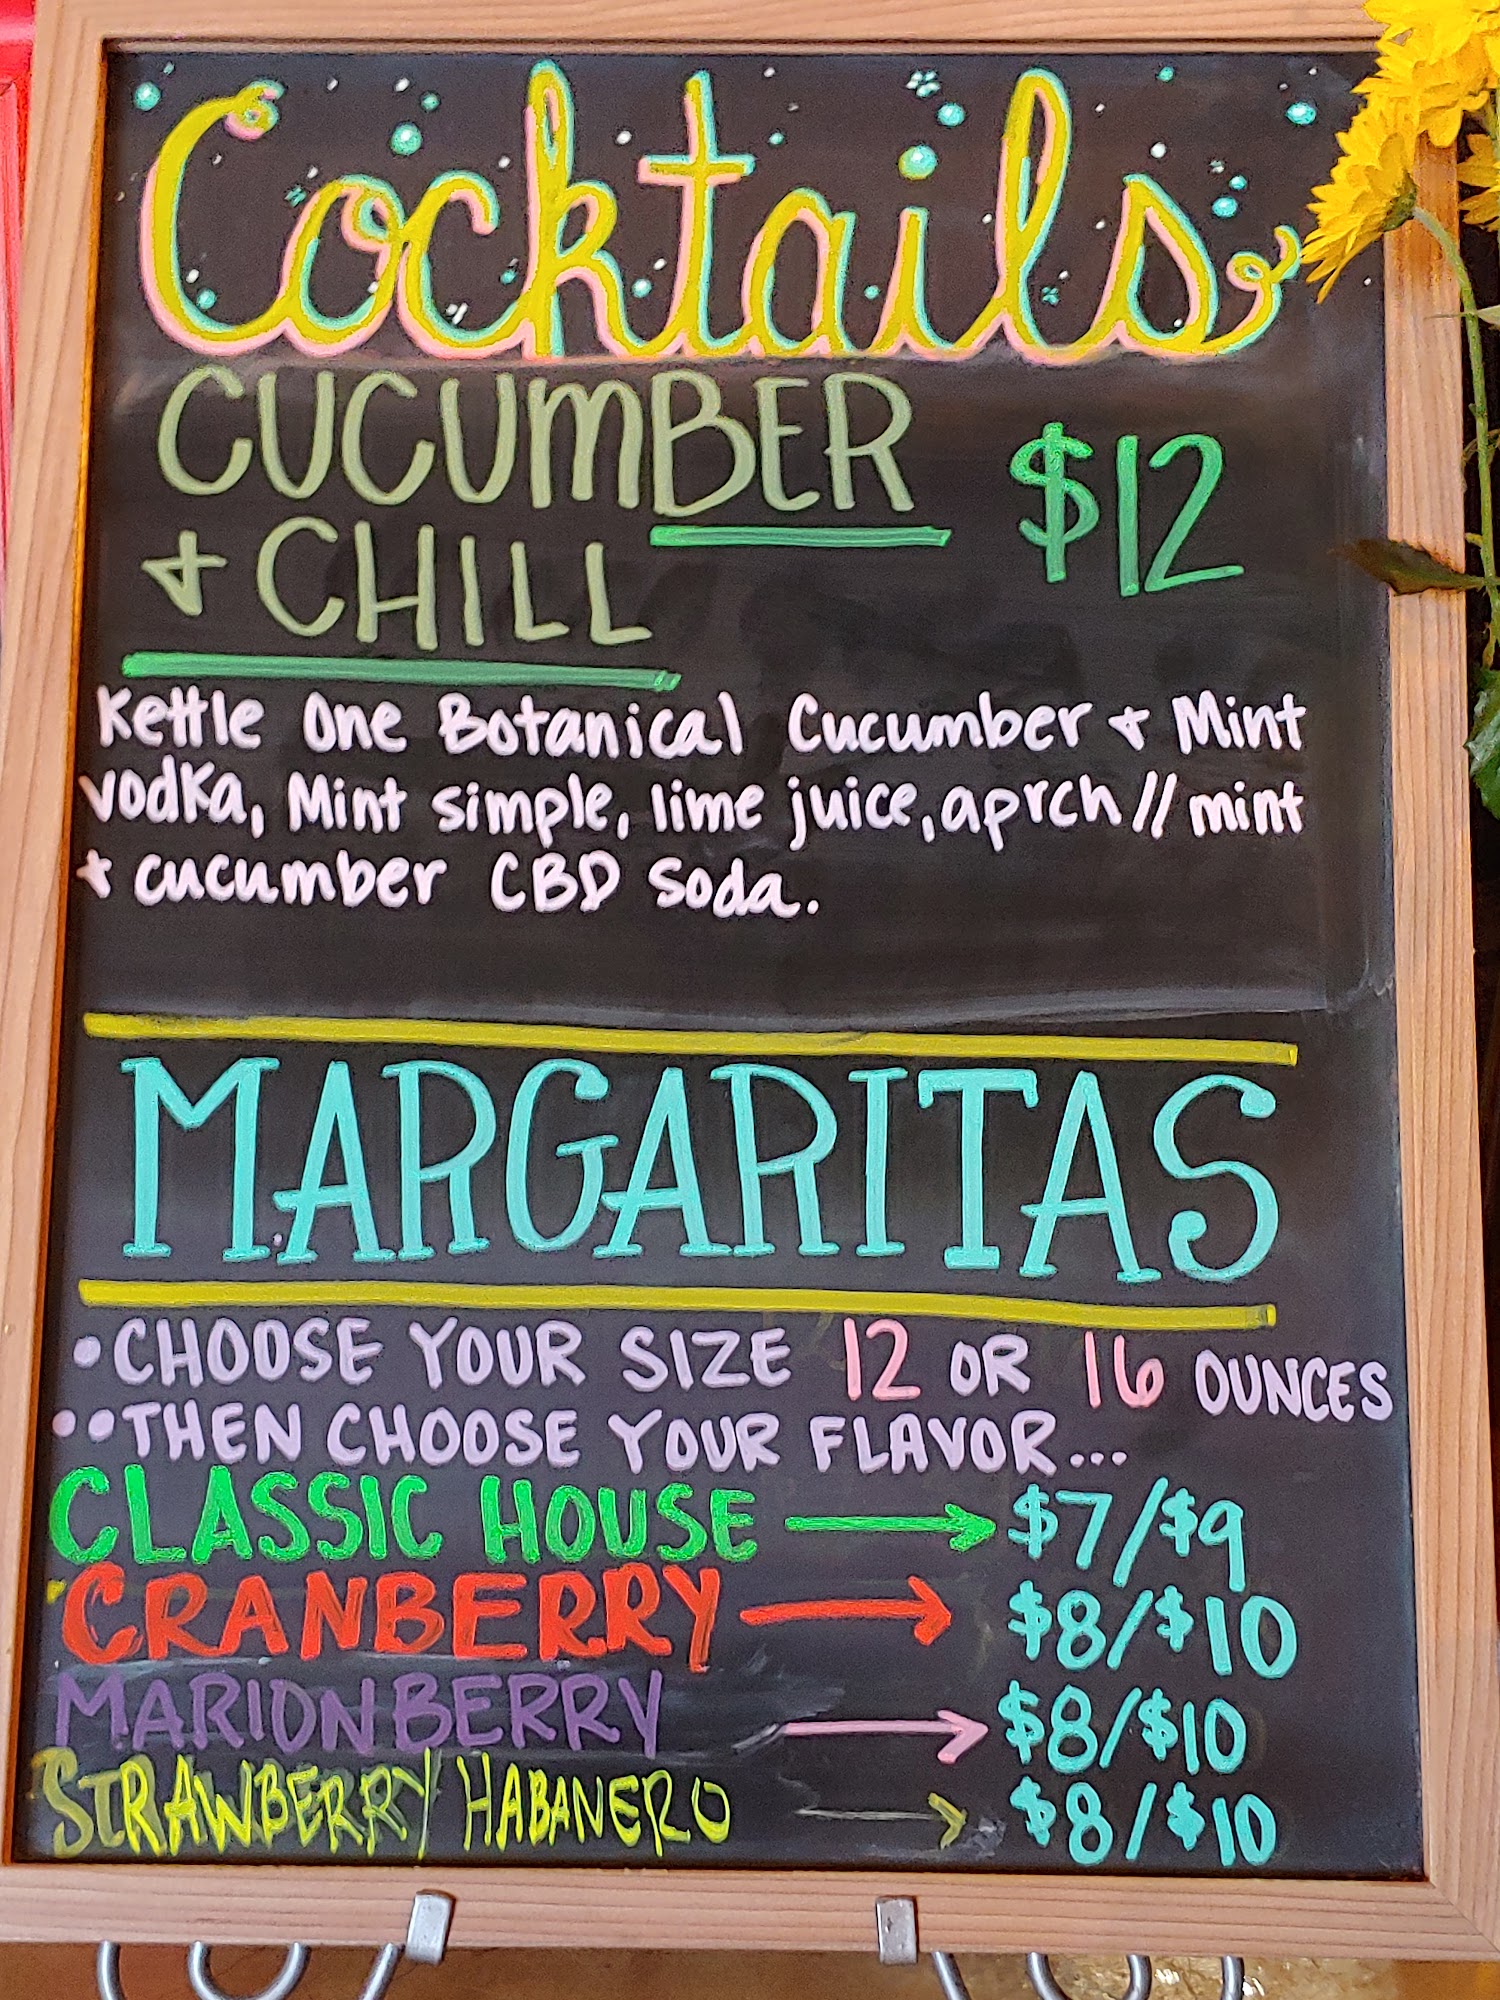 Cocktails
CUCUMBER $12
+ CHILL
Kettle One Botanical Cucumber + Mint
vodka, Mint simple, lime juice, aprch // mint
+ cucumber CBD Soda.
MARGARITAS
• CHOOSE YOUR SIZE 12 OR 16 OUNCES
•• THEN CHOOSE YOUR FLAVOR...
CLASSIC HOUSE → $7/$9
CRANBERRY → $8/$10
MARIONBERRY → $8/$10
STRAWBERRY HABANERO → $8/$10